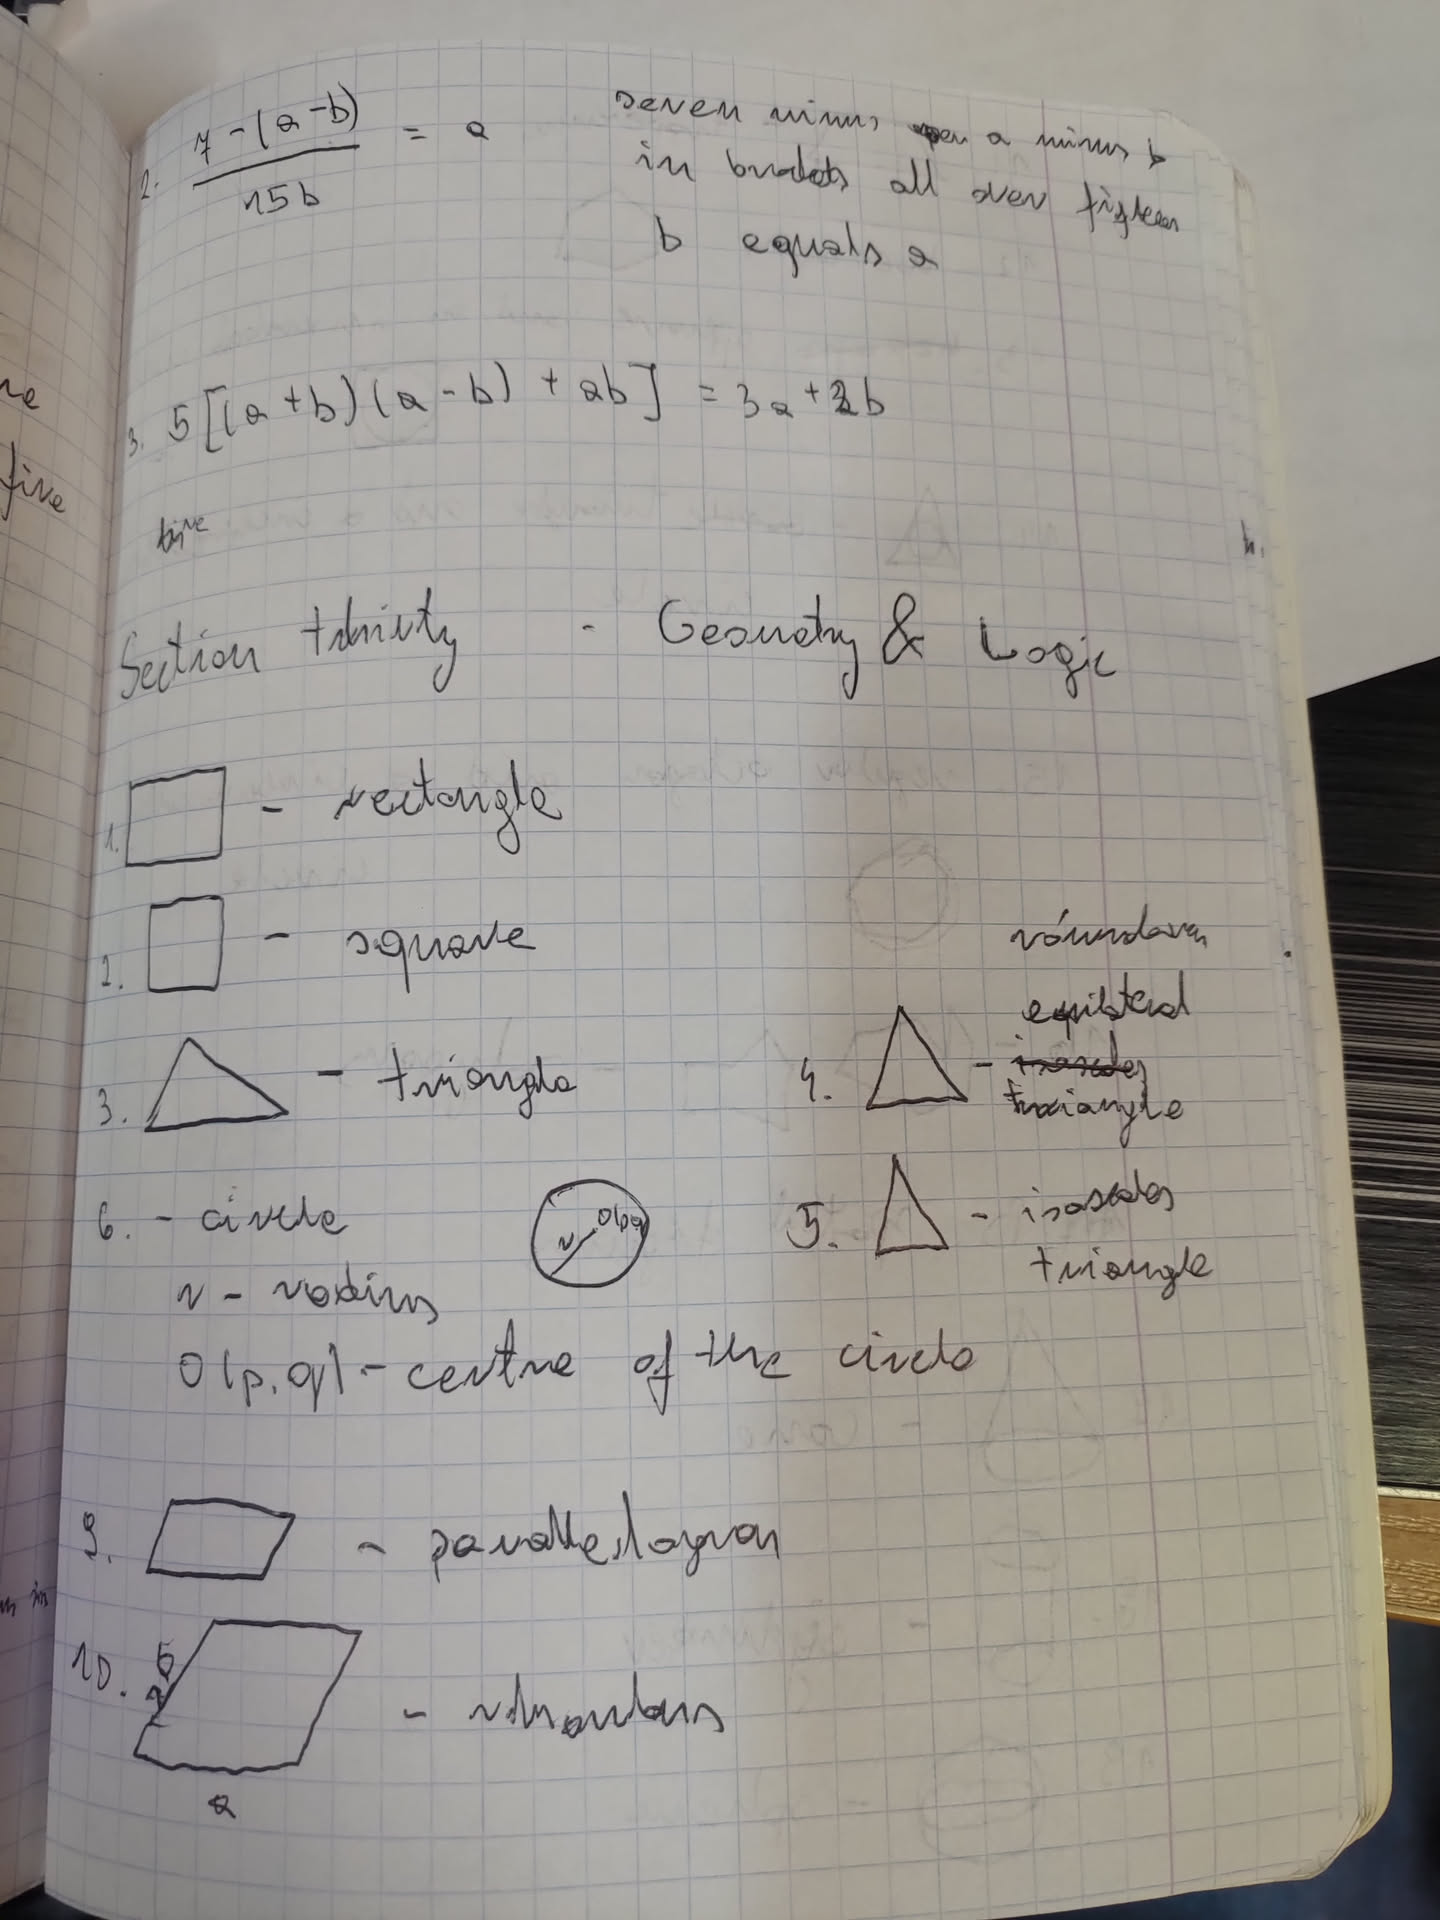 2. 7-(a-b) / 15b = a
seven minus a minus b
in brackets all over fifteen
b equals a
3. 5[(a+b)(a-b) + ab] = 3a+2b
five
five
Section thirty - Geometry & Logic
1. - rectangle
2. - square
3. - triangle
4. - equilateral
isosceles
triangle
5. - isosceles
triangle
6. - circle
r O(p,q)
r - radius
O(p,q) - centre of the circle
9. - parallelogram
10. - rhombus
a